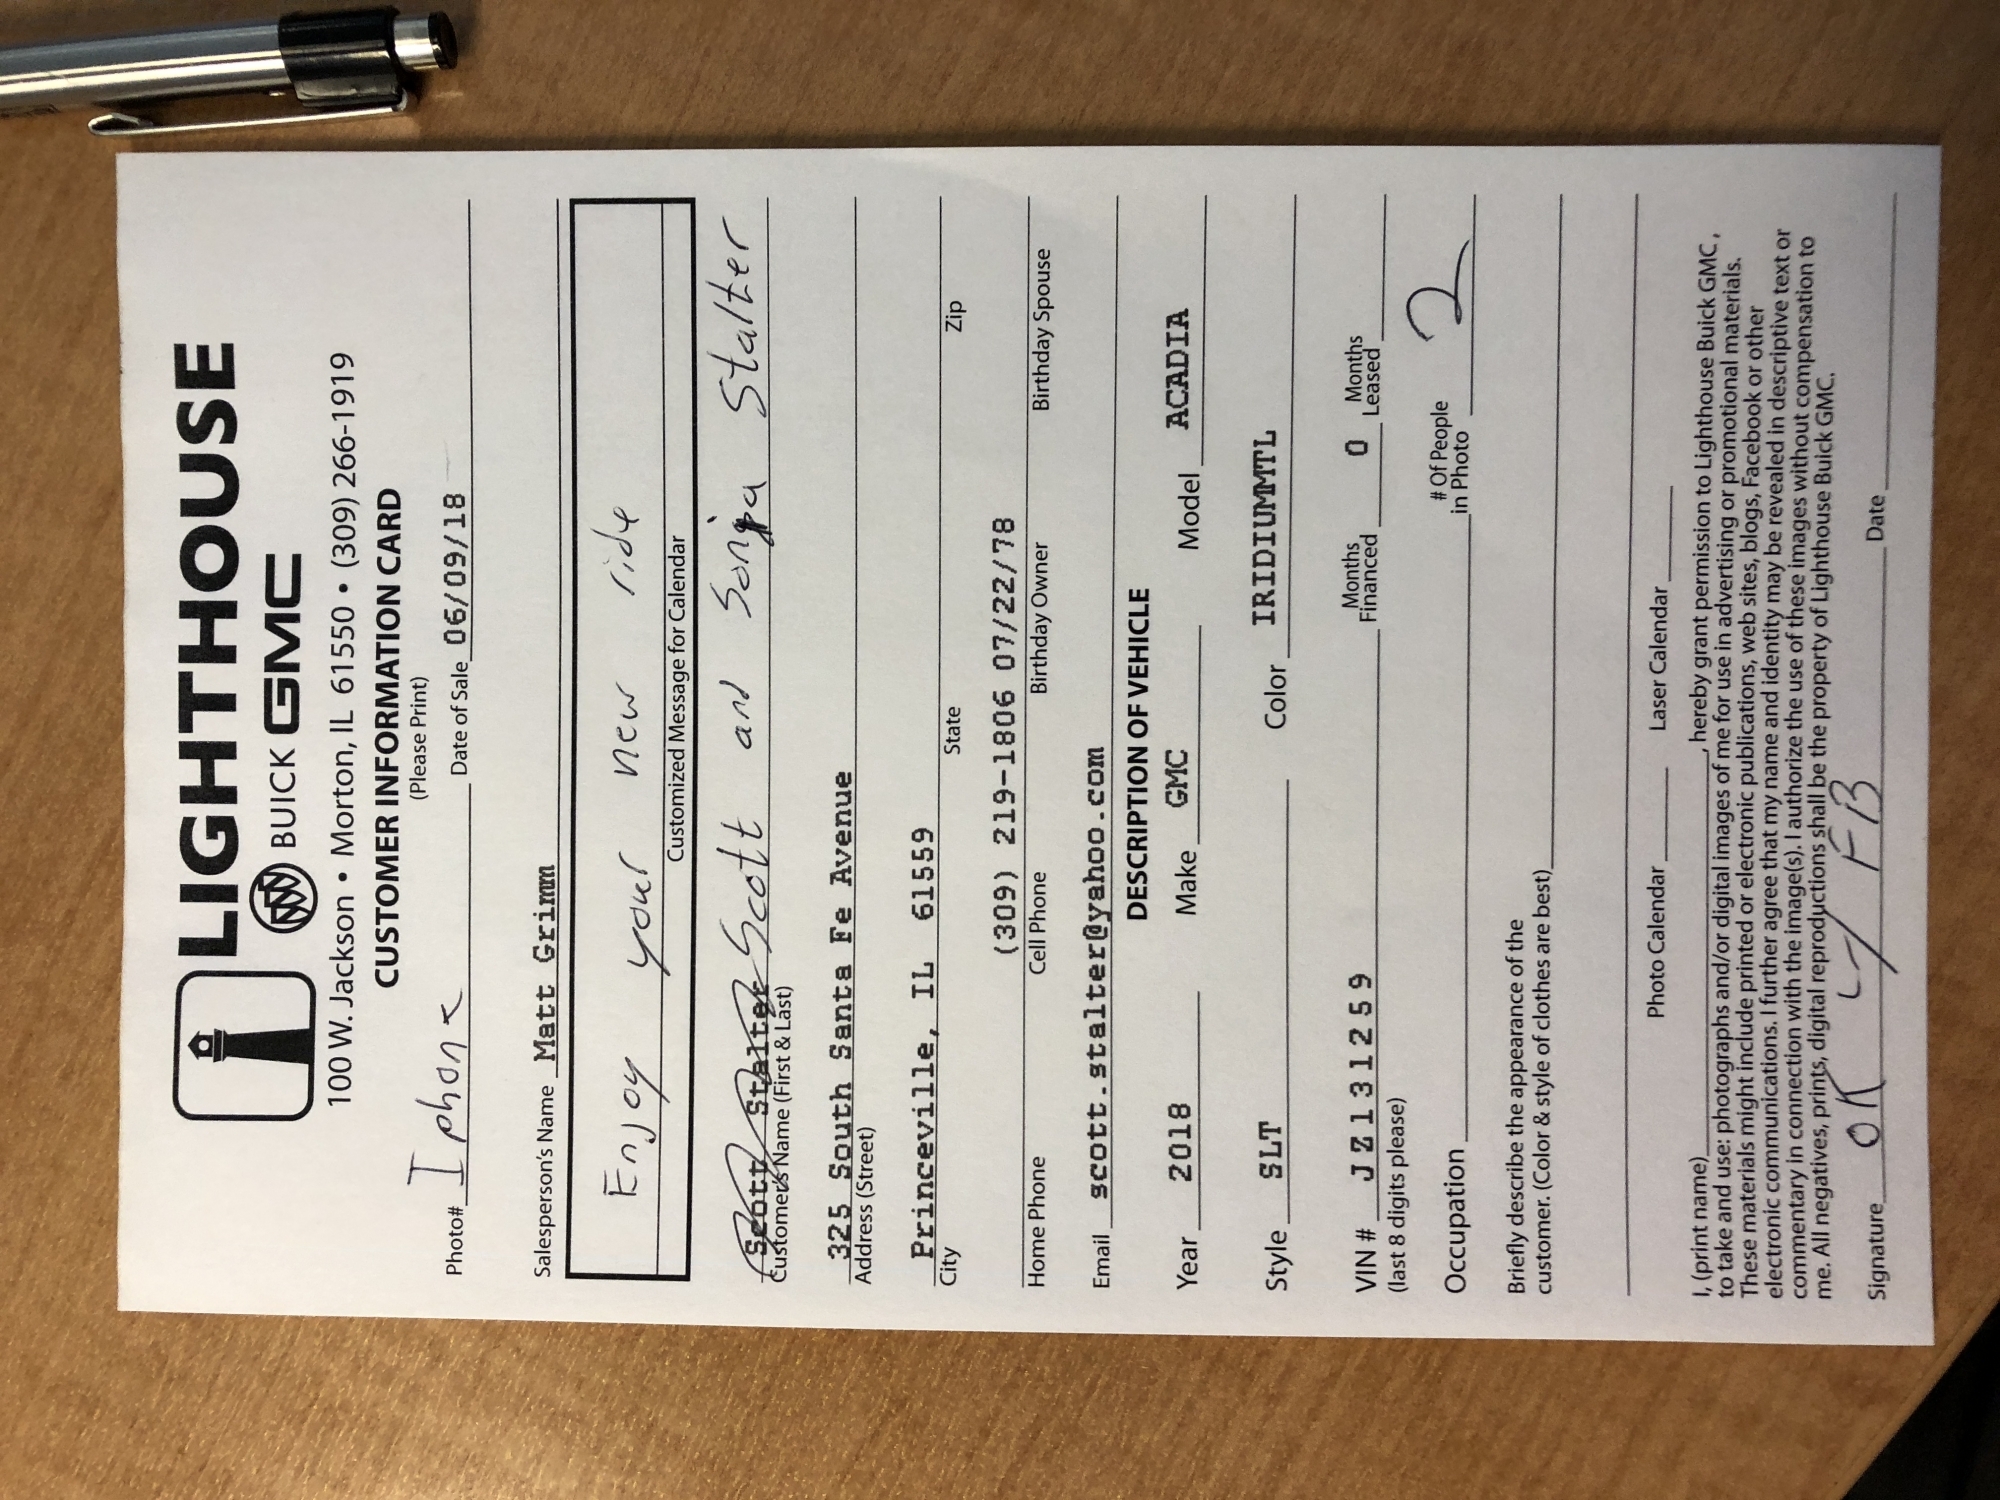 LIGHTHOUSE
BUICK GMC
100 W. Jackson • Morton, IL 61550 • (309) 266-1919
CUSTOMER INFORMATION CARD
(Please Print)
Photo# Iphone Date of Sale 06/09/18
Salesperson's Name Matt Grimm
Enjoy your new ride
Customized Message for Calendar
Scott Stalter Scott and Sonja Stalter
Customers Name (First & Last)
325 South Santa Fe Avenue
Address (Street)
Princeville, IL 61559
City State Zip
(309) 219-1806 07/22/78
Home Phone Cell Phone Birthday Owner Birthday Spouse
Email scott.stalter@yahoo.com
DESCRIPTION OF VEHICLE
Year 2018 Make GMC Model ACADIA
Style SLT Color IRIDIUMMTL
VIN # JZ131259 Months Financed 0 Months Leased
(last 8 digits please)
Occupation # Of People in Photo 2
Briefly describe the appearance of the
customer. (Color & style of clothes are best)
Photo Calendar Laser Calendar
I, (print name) , hereby grant permission to Lighthouse Buick GMC ,
to take and use: photographs and/or digital images of me for use in advertising or promotional materials.
These materials might include printed or electronic publications, web sites, blogs, Facebook or other
electronic communications. I further agree that my name and identity may be revealed in descriptive text or
commentary in connection with the image(s). I authorize the use of these images without compensation to
me. All negatives, prints, digital reproductions shall be the property of Lighthouse Buick GMC.
Signature OK 4 FB Date